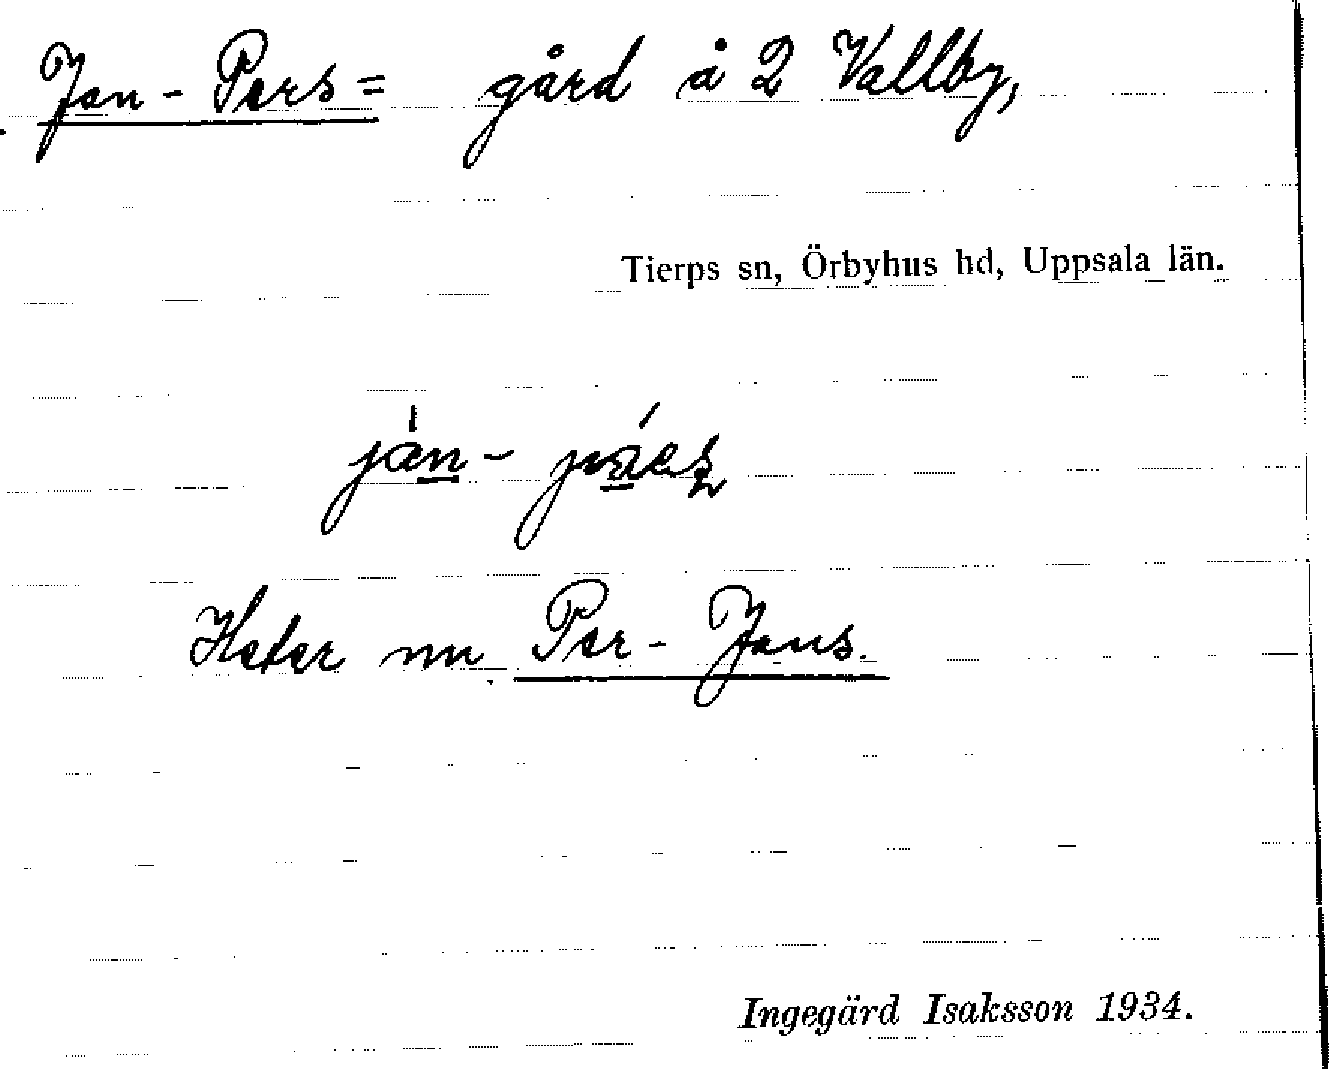 Jan-Pers= gård å 2 Vallby,
Tierps sn, Örbyhus hd, Uppsala län.
Heter nu Per-Jans.
Ingegärd Isaksson 1934.